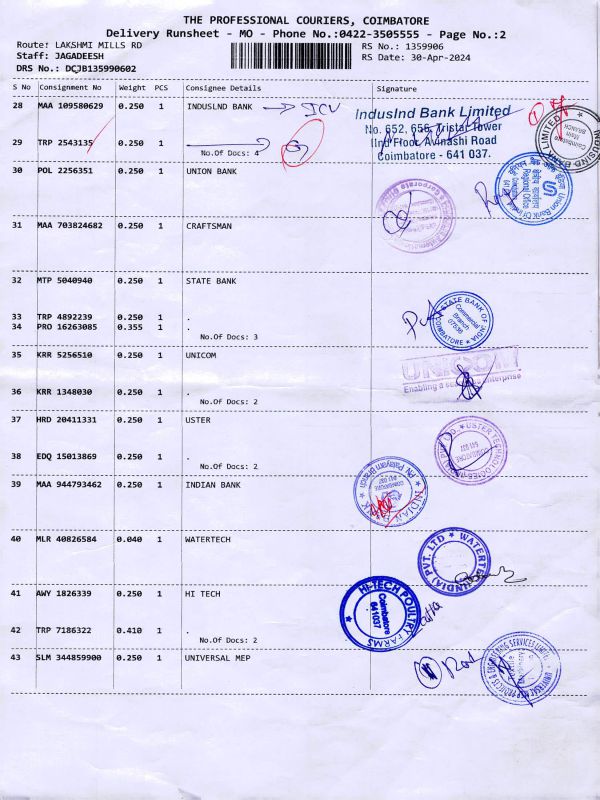 THE PROFESSIONAL COURIERS, COIMBATORE
Delivery Runsheet - MO - Phone No.:0422-3505555 - Page No.:2
Route: LAKSHMI MILLS RD
RS No.: 1359906
Staff: JAGADEESH
RS Date: 30-Apr-2024
DRS No.: DCJB135990602
S No Consignment No Weight PCS Consignee Details Signature
28 MAA 109580629 0.250 1 INDUSLND BANK
IndusInd Bank Limited
No. 652, 656, Tristar Tower
IInd Floor, Avinashi Road
Coimbatore - 641 037.
29 TRP 2543135 0.250 1
No.Of Docs: 4
30 POL 2256351 0.250 1 UNION BANK
Union Bank Of India
Regional Office
31 MAA 703824682 0.250 1 CRAFTSMAN
32 MTP 5040940 0.250 1 STATE BANK
STATE BANK OF INDIA
Commercial
Branch
07536
COIMBATORE
33 TRP 4892239 0.250 1 .
34 PRO 16263085 0.355 1 .
No.Of Docs: 3
35 KRR 5256510 0.250 1 UNICOM
UNICOM
36 KRR 1348030 0.250 1 .
No.Of Docs: 2
37 HRD 20411331 0.250 1 USTER
USTER TECHNOLOGIES
COIMBATORE
641 037
38 EDQ 15013869 0.250 1 .
No.Of Docs: 2
39 MAA 944793462 0.250 1 INDIAN BANK
INDIAN BANK
PN Palayam Branch
40 MLR 40826584 0.040 1 WATERTECH
WATERTECH (INDIA) PVT. LTD
41 AWY 1826339 0.250 1 HI TECH
HI-TECH POULTRY FARMS
Coimbatore
641037
42 TRP 7186322 0.410 1 .
No.Of Docs: 2
43 SLM 344859900 0.250 1 UNIVERSAL MEP
UNIVERSAL MEP PROJECTS & ENGINEERING SERVICES LIMITED